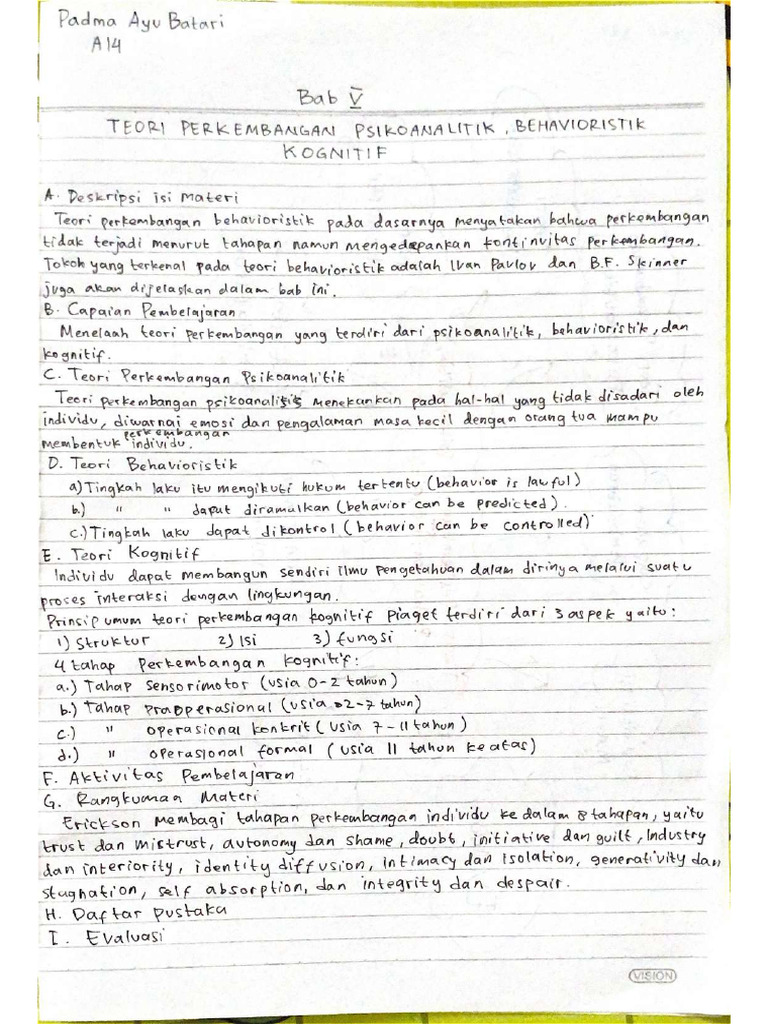 Padma Ayu Batari
A14
Bab V
TEORI PERKEMBANGAN PSIKOANALITIK, BEHAVIORISTIK
KOGNITIF
A. Deskripsi isi materi
Teori perkembangan behavioristik pada dasarnya menyatakan bahwa perkembangan
tidak terjadi menurut tahapan namun mengedepankan kontinuitas perkembangan.
Tokoh yang terkenal pada teori behavioristik adalah Ivan Pavlov dan B.F. Skinner
juga akan dijelaskan dalam bab ini.
B. Capaian Pembelajaran
Menelaah teori perkembangan yang terdiri dari psikoanalitik, behavioristik, dan
kognitif.
C. Teori Perkembangan Psikoanalitik
Teori perkembangan psikoanalisis menekankan pada hal-hal yang tidak disadari oleh
individu, diwarnai emosi dan pengalaman masa kecil dengan orang tua mampu
membentuk perkembangan individu.
D. Teori Behavioristik
a) Tingkah laku itu mengikuti hukum tertentu (behavior is lawful)
b.) " " dapat diramalkan (behavior can be predicted).
c.) Tingkah laku dapat dikontrol (behavior can be controlled)
E. Teori Kognitif
Individu dapat membangun sendiri ilmu pengetahuan dalam dirinya melalui suatu
proses interaksi dengan lingkungan.
Prinsip umum teori perkembangan kognitif piaget terdiri dari 3 aspek yaitu:
1) Struktur 2) Isi 3) fungsi
4 tahap perkembangan kognitif:
a.) Tahap sensorimotor (usia 0-2 tahun)
b.) Tahap praoperasional (usia 2-7 tahun)
c.) " operasional konkrit (usia 7-11 tahun)
d.) " operasional formal (usia 11 tahun keatas)
F. Aktivitas Pembelajaran
G. Rangkuman Materi
Erickson membagi tahapan perkembangan individu ke dalam 8 tahapan, yaitu
trust dan mistrust, autonomy dan shame, doubt, initiative dan guilt, Industry
dan interiority, identity diffusion, intimacy dan isolation, generativity dan
stagnation, self absorption, dan integrity dan despair.
H. Daftar pustaka
I. Evaluasi
VISION